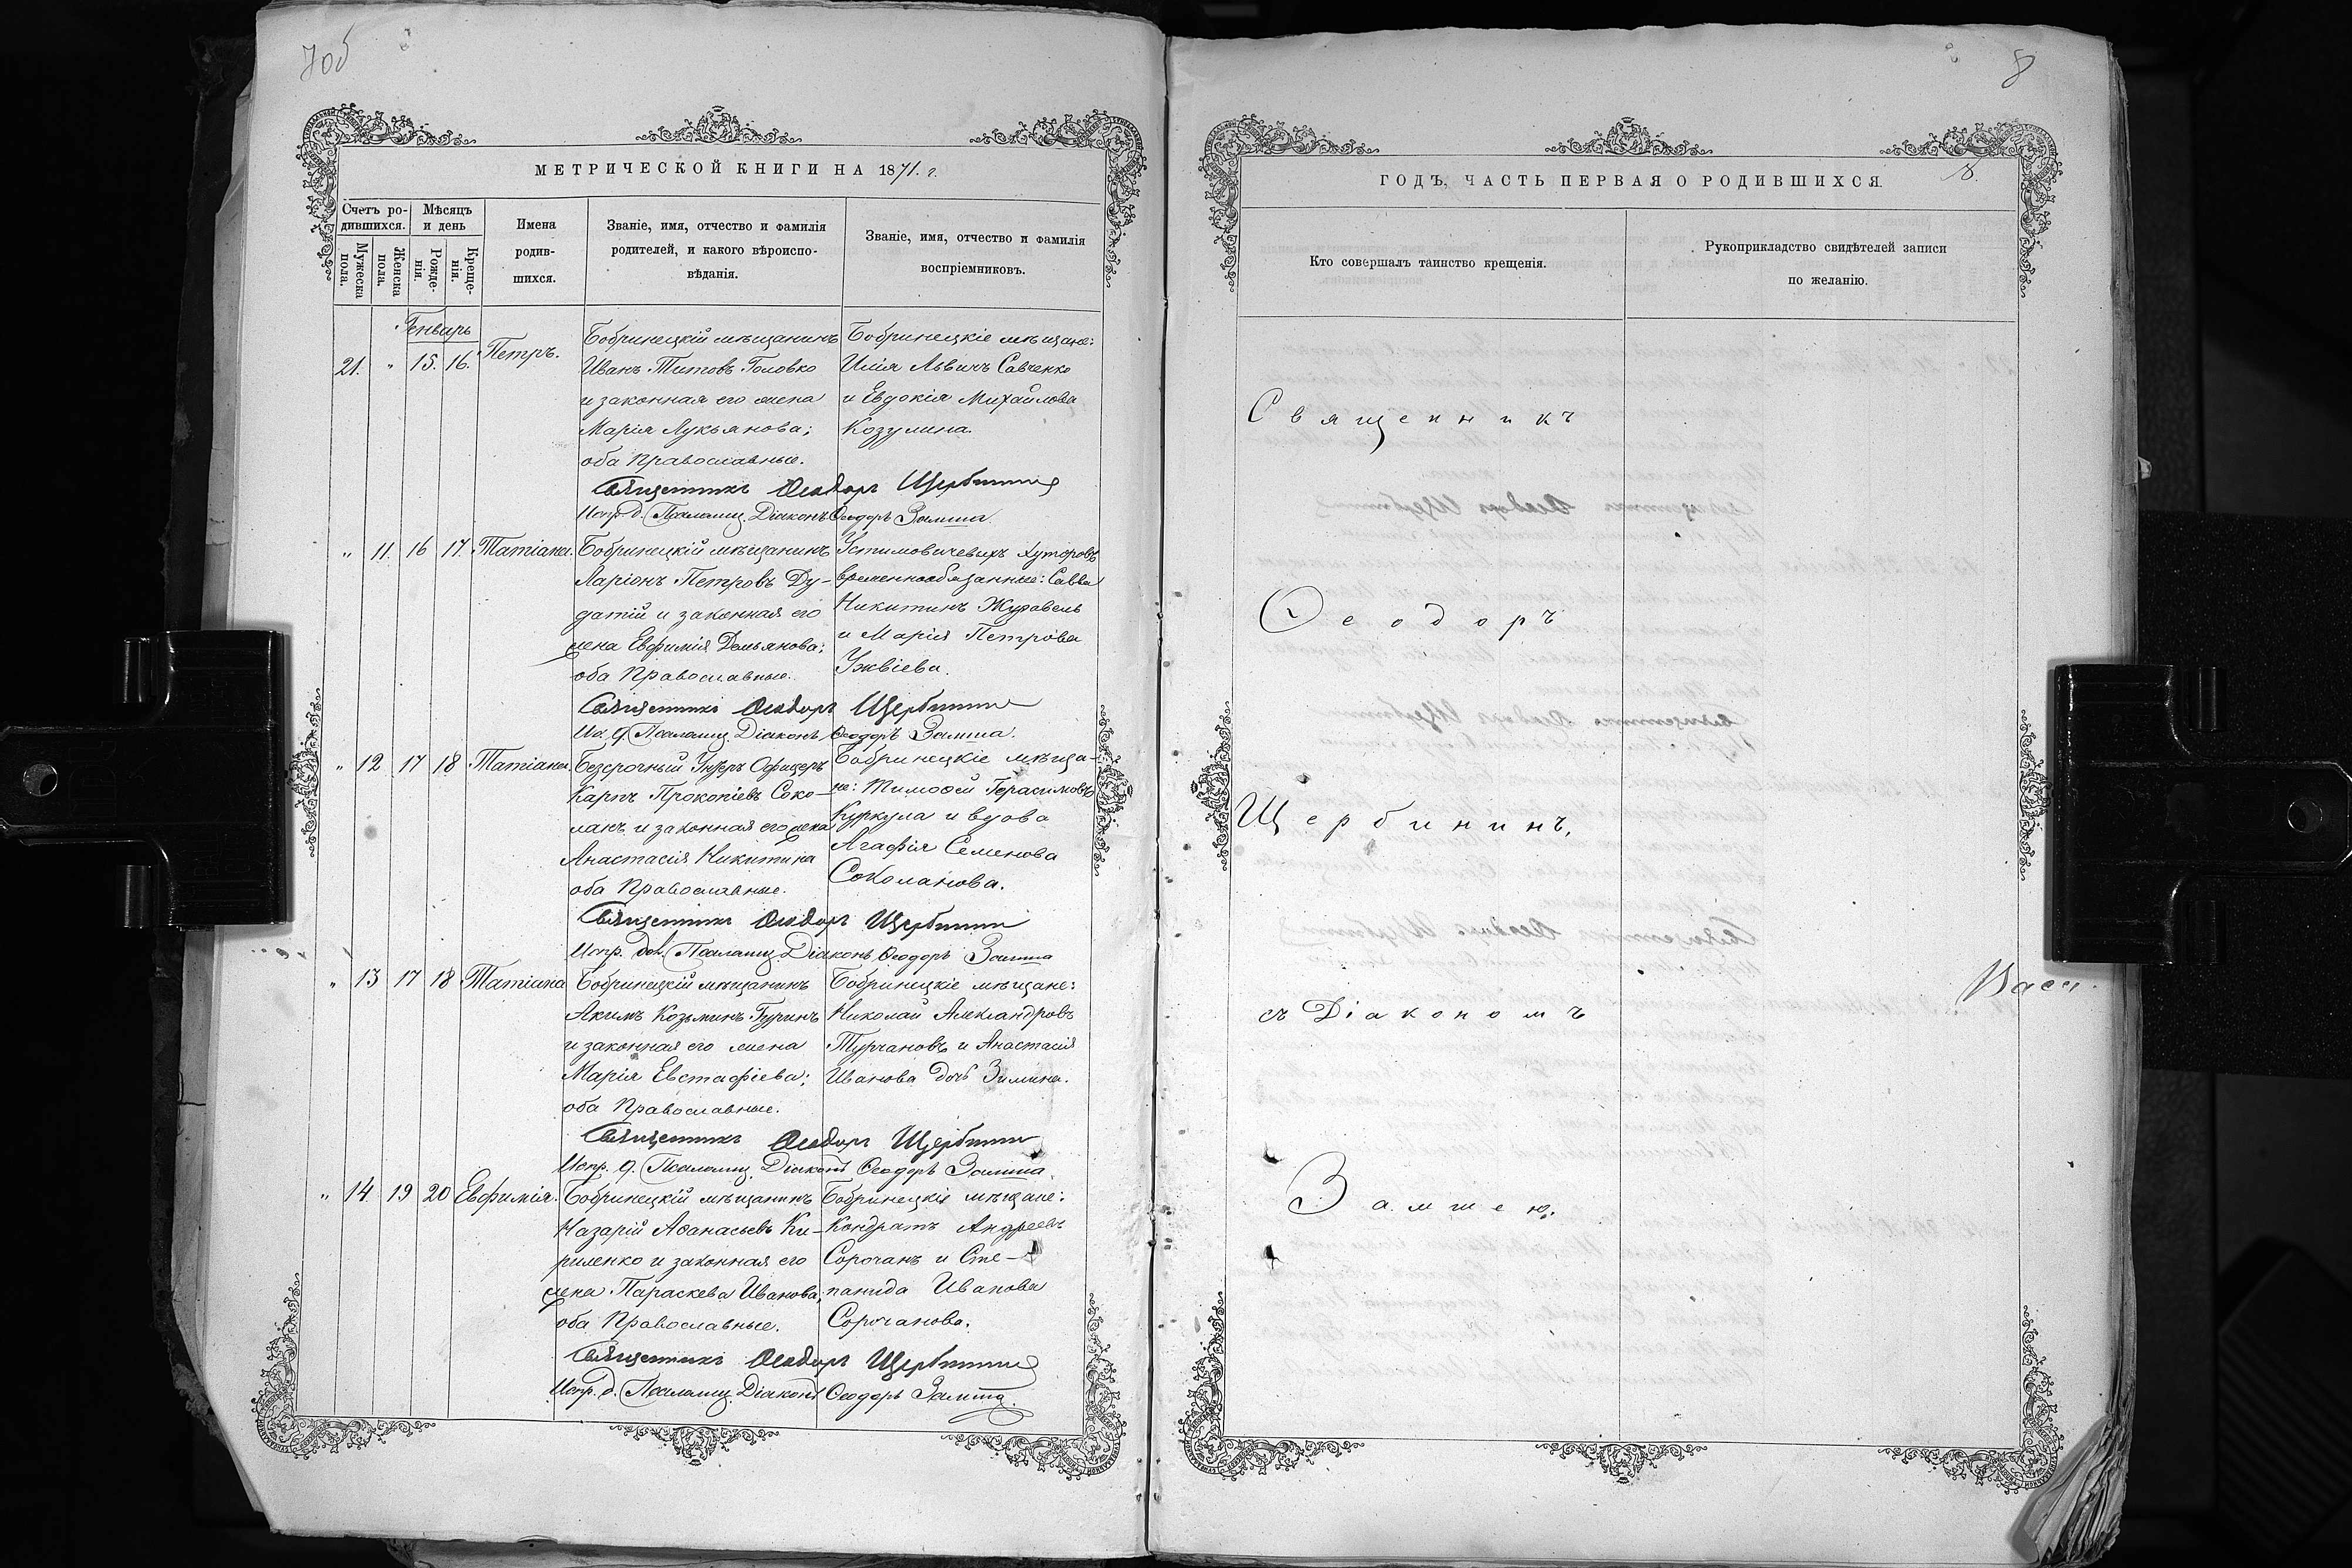 7об
МЕТРИЧЕСКОЙ КНИГИ НА 1871. г.
Счетъ ро-
дившихся.
Мѣсяцъ
и день
Мужеска
пола.
Женска
пола.
Рожде-
нія.
Креще-
нія.
Имена
родив-
шихся.
Званіе, имя, отчество и фамилія
родителей, и какого вѣроиспо-
вѣданія.
Званіе, имя, отчество и фамилія
воспріемниковъ.
Генварь
21. " 15. 16. Петръ.
Бобринецкій мѣщанинъ
Иванъ Титовъ Головко
и законная его жена
Марія Лукьянова;
оба Православные.
Бобринецкіе мѣщане:
Илія Львичъ Савченко
и Евдокія Михайлова
Козулина.
Священникъ Ѳеодоръ Щербининъ
Испр. д. Псаломщ. Діаконъ Ѳеодоръ Замша
" 11. 16 17. Татіана.
Бобринецкій мѣщанинъ
Ларіонъ Петровъ Ду-
датій и законная его
жена Евфимія Демьянова;
оба Православные.
Устимовичевыхъ хуторовъ
временнообязанные: Савва
Никитинъ Журавель
и Марія Петрова
Ужвіева.
Священникъ Ѳеодоръ Щербининъ
Ис. д. Псаломщ. Діаконъ Ѳеодоръ Замша.
" 12 17 18 Татіана.
Безсрочный Унтеръ Офицеръ
Карпъ Прокопіевъ Соко-
ланъ и законная его жена
Анастасія Никитина
оба Православные.
Бобринецкіе мѣща-
не: Тимоѳей Герасимовъ
Куркула и вдова
Агафія Семенова
Соколанова.
Священникъ Ѳеодоръ Щербининъ
Испр. дол. Псаломщ. Діаконъ Ѳеодоръ Замша
" 13 17 18 Татіана
Бобринецкій мѣщанинъ
Акимъ Козьминъ Гуринъ
и законная его жена
Марія Евстафіева;
оба Православные.
Бобринецкіе мѣщане:
Николай Александровъ
Турчановъ и Анастасія
Иванова дочь Зимина.
Священникъ Ѳеодоръ Щербининъ
Испр. д. Псаломщ. Діаконъ Ѳеодоръ Замша
" 14 19 20 Евфимія.
Бобринецкій мѣщанинъ
Назарій Аѳанасьевъ Ки-
риленко и законная его
жена Параскева Иванова;
оба Православные.
Бобринецкіе мѣщане:
Кондратъ Андреевъ
Сорочанъ и Сте-
панида Иванова
Сорочанова.
Священникъ Ѳеодоръ Щербининъ
Испр. д. Псаломщ. Діаконъ Ѳеодоръ Замша.
8
ГОДЪ, ЧАСТЬ ПЕРВАЯ О РОДИВШИХСЯ. 8.
Кто совершалъ таинство крещенія.
Рукоприкладство свидѣтелей записи
по желанію.
Священникъ
Ѳеодоръ
Щербининъ,
съ Діакономъ
Замшею.